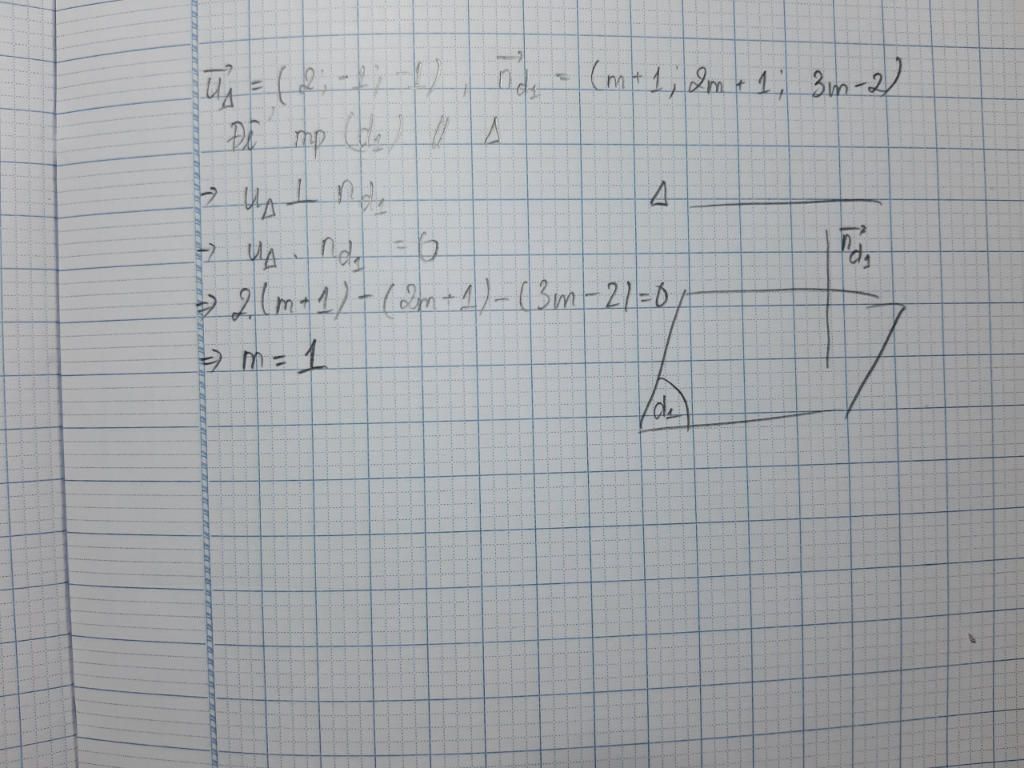 u⃗_Δ = (2; -1; -1), n⃗_d₁ = (m+1; 2m+1; 3m-2)
Để mp (d₁) // Δ
→ u_Δ ⊥ n_d₁
→ u_Δ . n_d₁ = 0
⇒ 2.(m+1) - (2m+1) - (3m-2) = 0
⇒ m = 1
Δ
n⃗_d₁
d₁